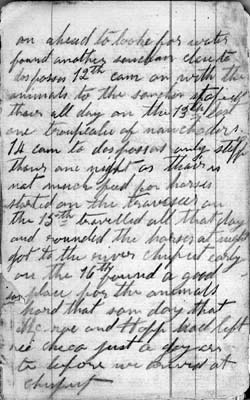 on ahead to looke for water
found another sanchon close to
dosposos 12th cam on with the
animals to the sanchon stoped
thair all day on the 13th lost
one troupalia of manchadors
14 cam to dosposos only stopt
thair one night as thair is
not much feed for horses
started on the travesser on
the 15th travelled all that day
and rounded the horses at night
got to the river chuput early
on the 16th found a good
place for the animals
hard that sam day that
and Hopp had left
just a day or
to before we arived at
chuput